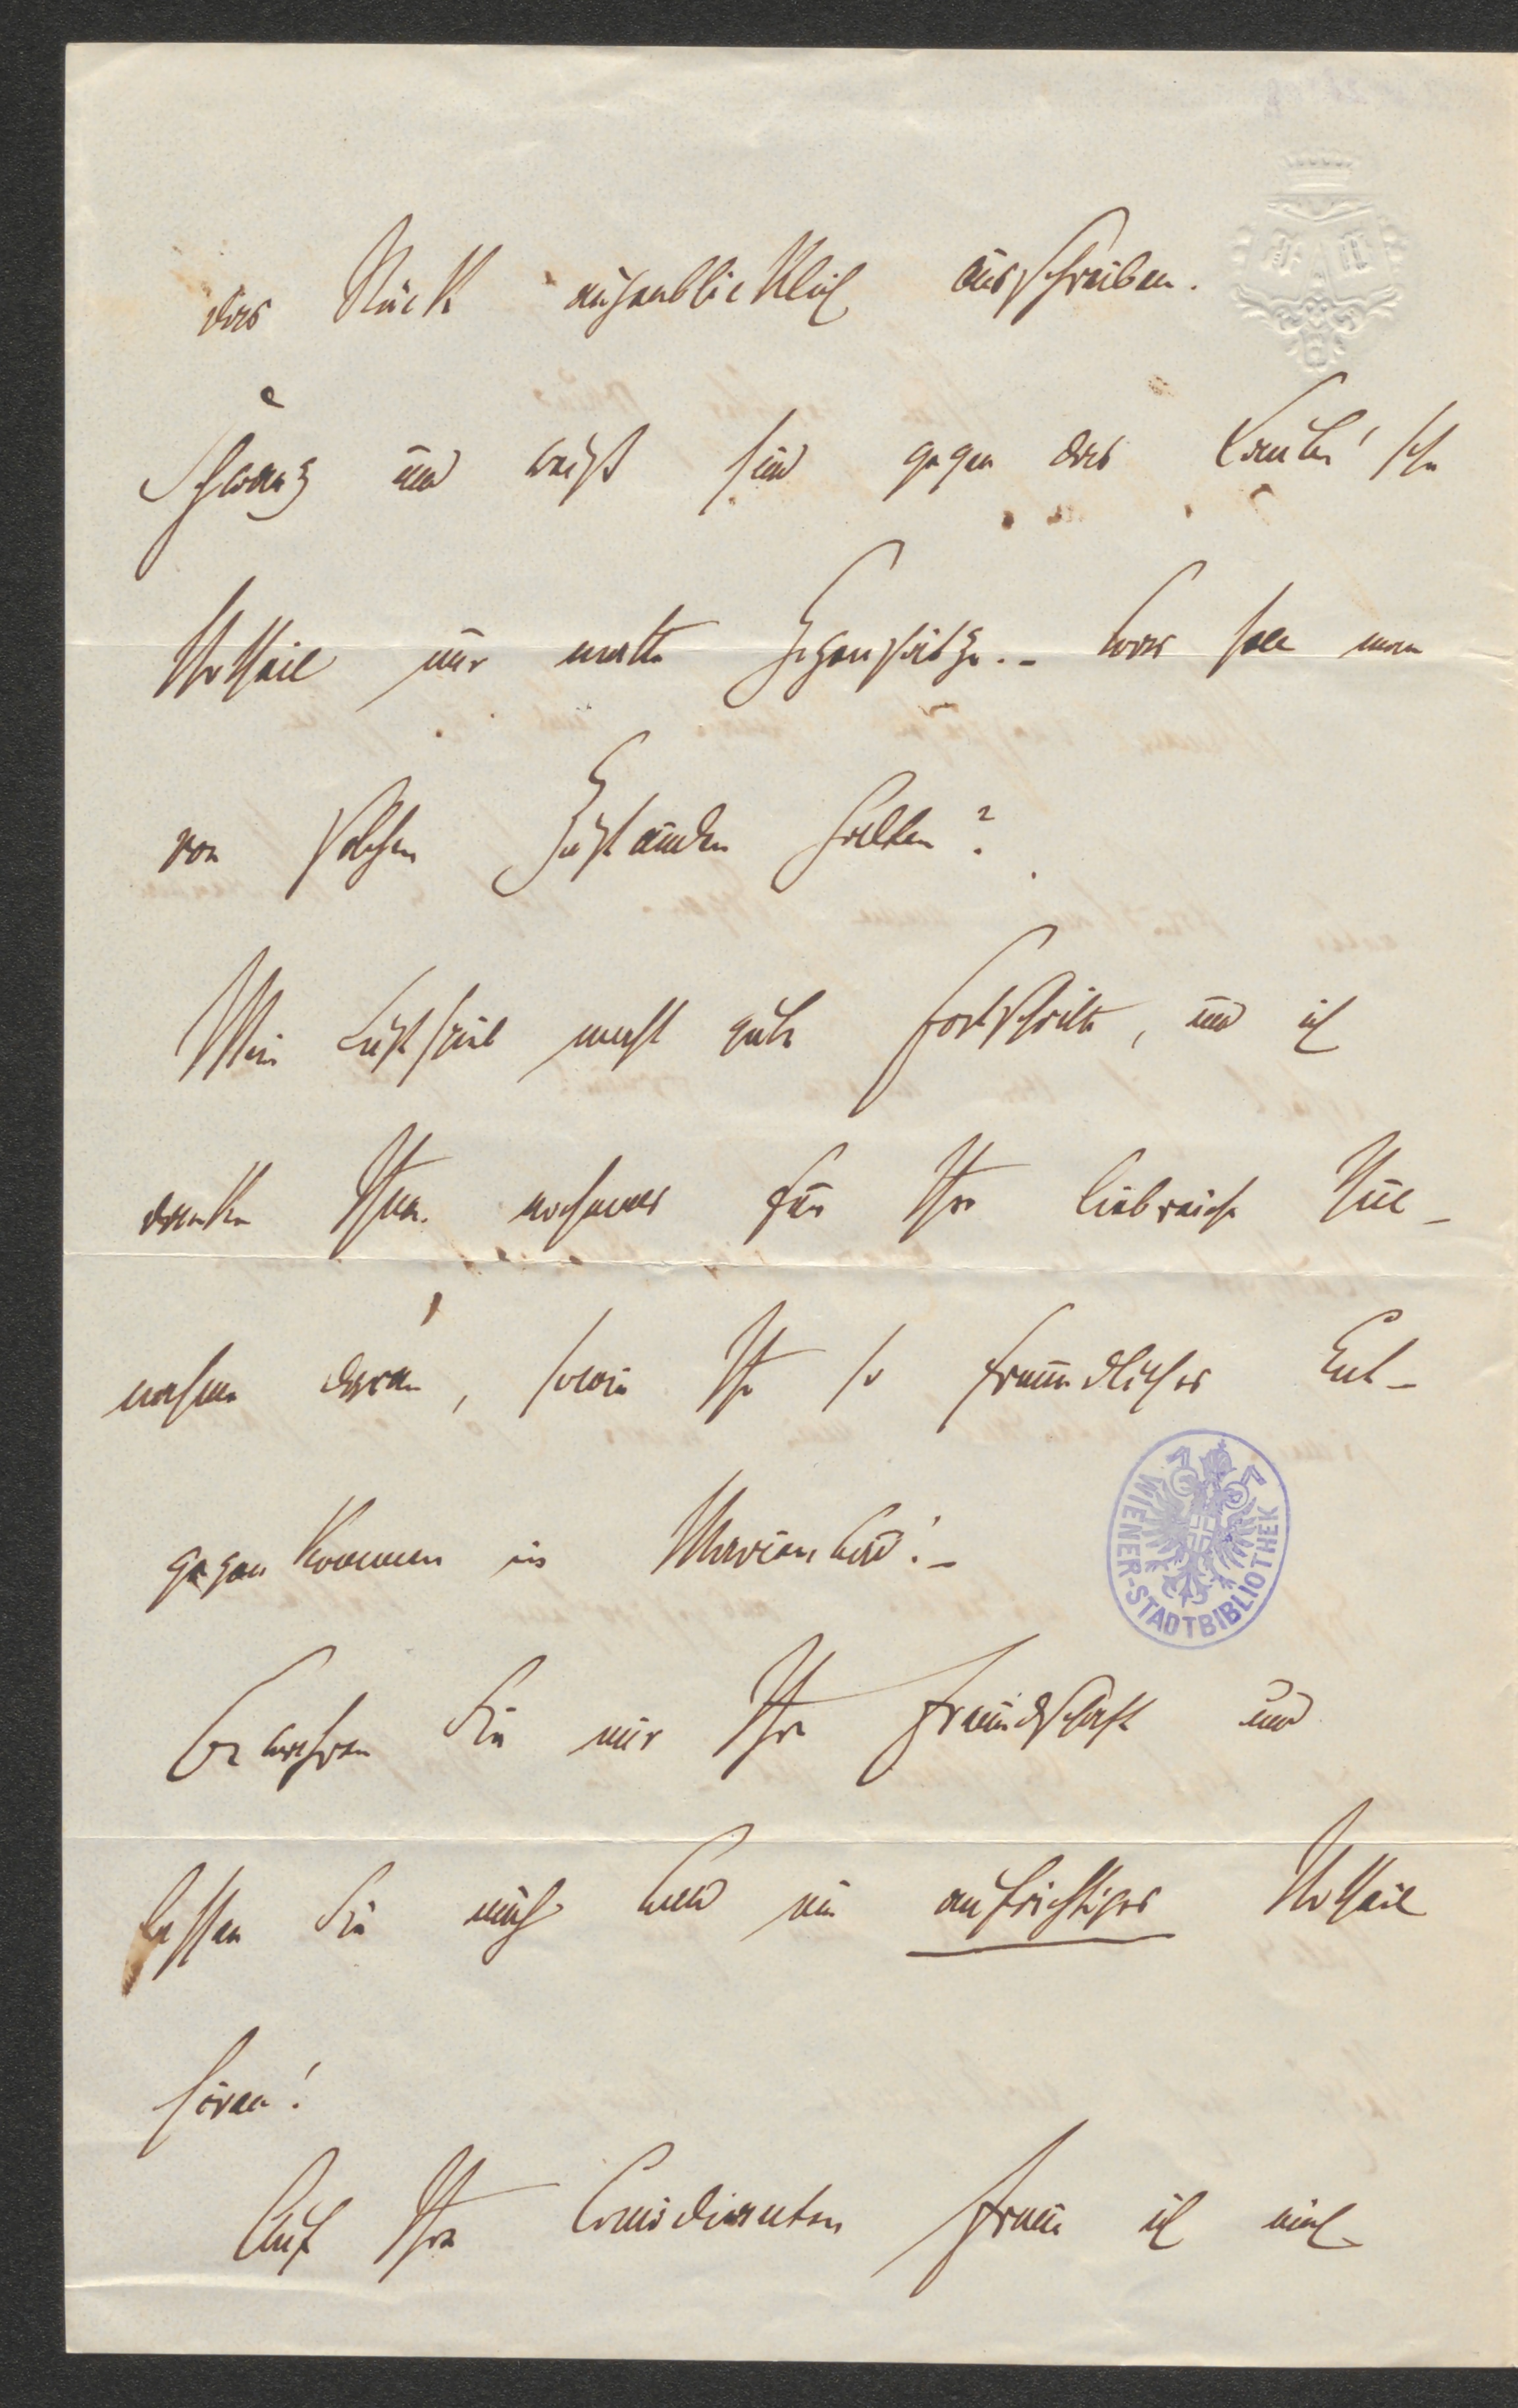 das Stück augenblicklich ausschreiben.
Schwarz und weiß sind gegen das Laube'sche
Urtheil nur matte Gegensätze. – Was soll man
von solchen Zuständen halten?
Mein Lustspiel macht gute Fortschritte, und ich
danke Ihnen nochmals für Ihre liebreiche Theil-
nahme daran, sowie Ihr so freundliches Ent-
gegenkommen in Marienbad! –
Bewahren Sie mir Ihre Freundschaft und
lassen Sie mich bald ein aufrichtiges Urtheil
hören!
Auf Ihre Comödianten freue ich mich
WIENER-STADTBIBLIOTHEK